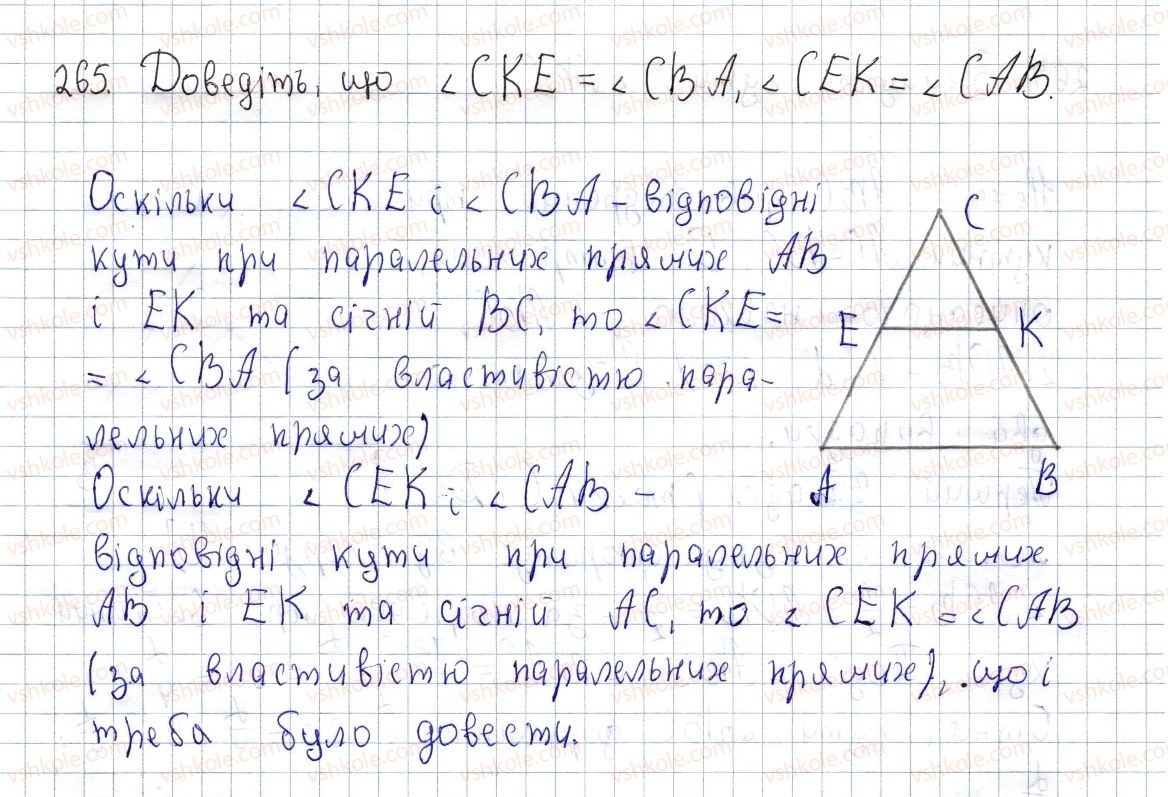 265. Доведіть, що <CKE = <CBA, <CEK = <CAB.
Оскільки <CKE і <CBA – відповідні
кути при паралельних прямих AB
і EK та січній BC, то <CKE =
= <CBA (за властивістю пара-
лельних прямих)
Оскільки <CEK і <CAB –
відповідні кути при паралельних прямих
AB і EK та січній AC, то <CEK = <CAB
(за властивістю паралельних прямих), що і
треба було довести.
C
E
K
A
B